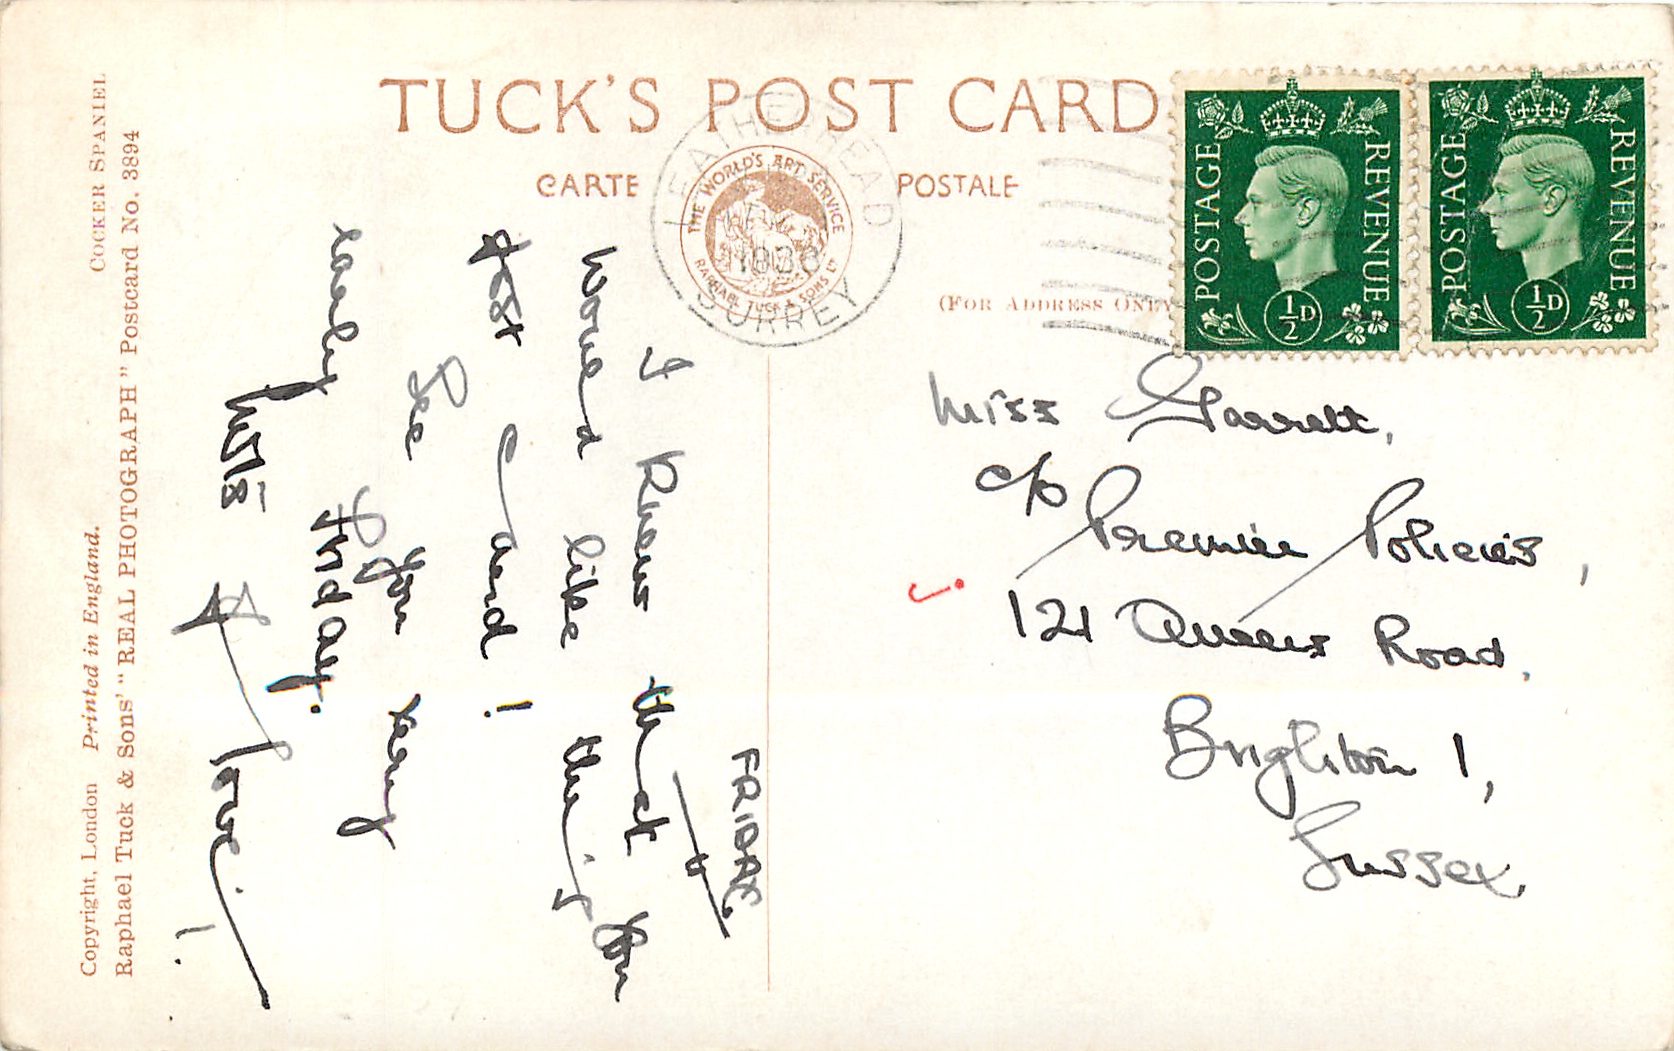 TUCK'S POST CARD
CARTE POSTALE
THE WORLD'S ART SERVICE
RAPHAEL TUCK & SONS LTD
LEATHERHEAD
SURREY
(FOR ADDRESS ONLY
POSTAGE REVENUE
½D
POSTAGE REVENUE
½D
FRIDAY.
I Knew that you
would like
Card!
See you very
early Friday.
love!
Miss Garrett,
c/o Premier Policies,
121 Queens Road,
Brighton 1,
Sussex.
COCKER SPANIEL
Copyright, London Printed in England.
Raphael Tuck & Sons' "REAL PHOTOGRAPH" Postcard No. 3894